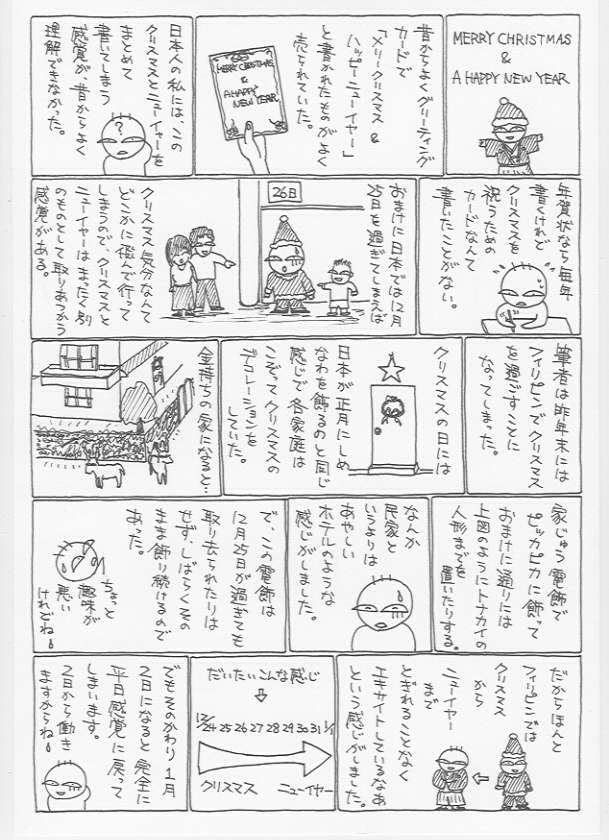 MERRY CHRISTMAS
&
A HAPPY NEW YEAR
昔からよくグリーティング
カードで
「メリークリスマス&
ハッピーニューイヤー」
と書かれたものがよく
売られていた。
MERRY CHRISTMAS
&
A HAPPY
NEW YEAR
日本人の私には、この
クリスマスとニューイヤーを
まとめて
書いてしまう
感覚が、昔からよく
理解できなかった。
?
年賀状なら毎年
書くけれど
クリスマスを
祝うための
カードなんて
書いたことがない。
おまけに日本では12月
25日を過ぎてしまえば
26日
クリスマス気分なんて
どこかに飛んで行って
しまうので、クリスマスと
ニューイヤーはまったく別
のものとして取りあつかう
感覚がある。
筆者は昨年末には
フィリピンでクリスマス
を過ごすことに
なってしまった。
クリスマスの日には
日本が正月にしめ
なわを飾るのと同じ
感じで各家庭は
こぞってクリスマスの
デコレーションを
していた。
金持ちの家になると…
家じゅう電飾で
ピッカピカに飾って
おまけに通りには
上図のようにトナカイの
人形までを
置いたりする。
なんか
民家と
いうよりは
あやしい
ホテルのような
感じがしました。
で、この電飾は
12月25日が過ぎても
取り去られたりは
せず、しばらくその
まま飾り続けるので
あった。
ちょっと
趣味が
悪い
けれどね!
だからほんと
フィリピンでは
クリスマス
から
ニューイヤー
まで
とぎれることなく
エキサイトしているなあ
という感じがしました。
だいたいこんな感じ
12/24 25 26 27 28 29 30 31 1/1
クリスマス ニューイヤー
でもそのかわり1月
2日になると完全に
平日感覚に戻って
しまいます。
2日から働き
ますからね!